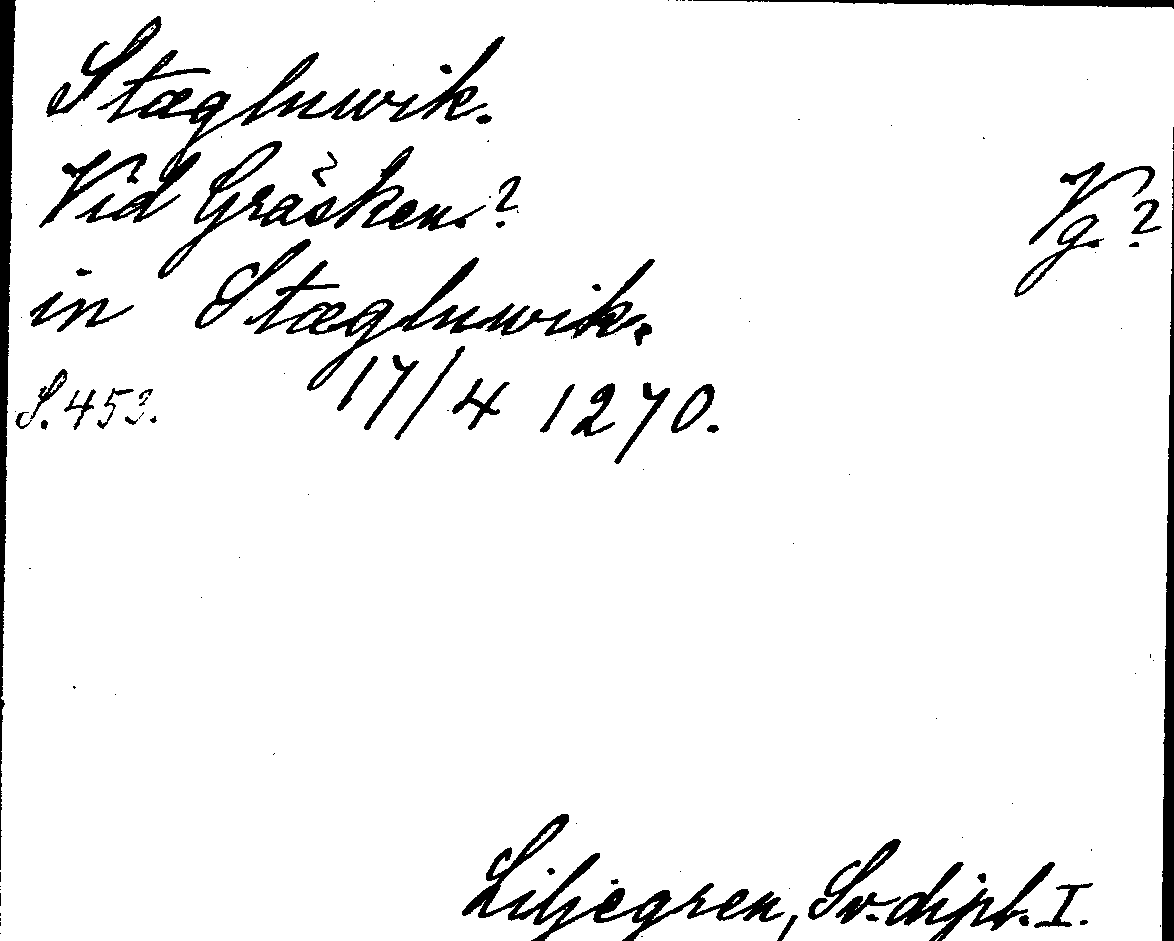 Stægluwik.
Vid Gräsken.? Vg.?
in Stægluwik.
S. 453. 17/4 1270.
Liljegren, Sv. dipl. I.